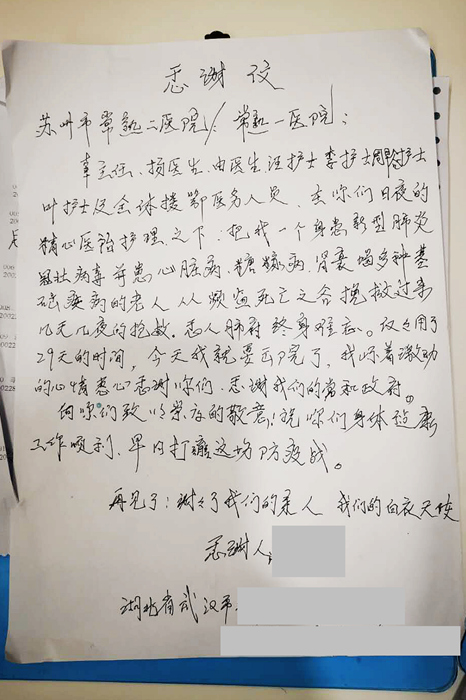 感谢信
苏州市常熟二医院/常熟一医院:
章主任、顾医生、由医生汪护士李护士周护士
叶护士及全体援鄂医务人员、在你们日夜的
精心医治护理之下,把我一个身患新型肺炎
冠状病毒并患心脏病、糖尿病、肾衰竭多种基
础疾病的老人从频临死亡之谷挽救过来
几天几夜的抢救。感人肺府终身难忘。仅仅用了
29天的时间,今天我就要出院了,我怀着激动
的心情衷心感谢你们、感谢我们的党和政府。
向你们致以崇高的敬意!祝你们身体健康
工作顺利、早日打赢这场防疫战。
再见了:谢谢了我们的亲人 我们的白衣天使
感谢人:
湖北省武汉市